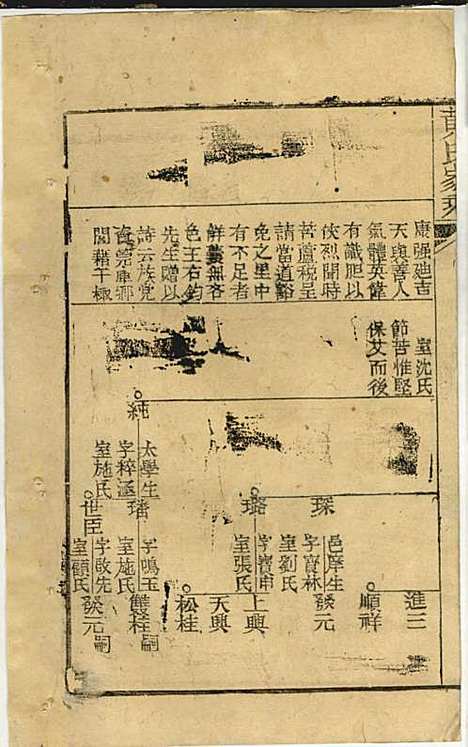 黄氏家乘
康强廸吉
天與善人
氣體英偉
有識胆以
俠烈聞時
苦蘆稅呈
請當道豁
免之里中
有不足者
解囊無吝
色王右鈞
先生贈以
詩云族党
閲藉干楨
室沈氏
節苦惟堅
保艾而後
進三
順祥
琛
邑庠生
字寶林
室劉氏
發元
璐
字寶甫
室張氏
上興
天興
松桂
純
太學生
字粹涵
室施氏
璠
字鳴玉
室施氏
雙桂嗣
世臣
字啟先
室顧氏
發元嗣